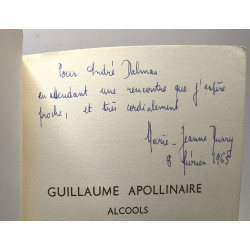 Pour André Dalmas
en attendant une rencontre que j'espère
proche, et très cordialement
Marie-Jeanne Durry
8 février 1965
GUILLAUME APOLLINAIRE
ALCOOLS